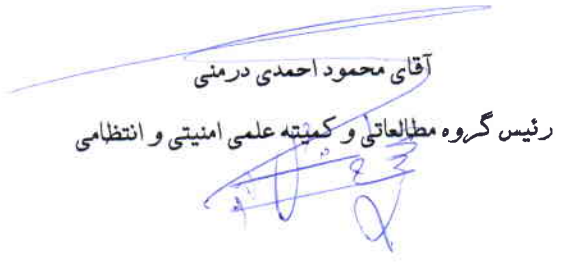 آقای محمود احمدی درمنی
رئیس گروه مطالعاتی و کمیته علمی امنیتی و انتظامی